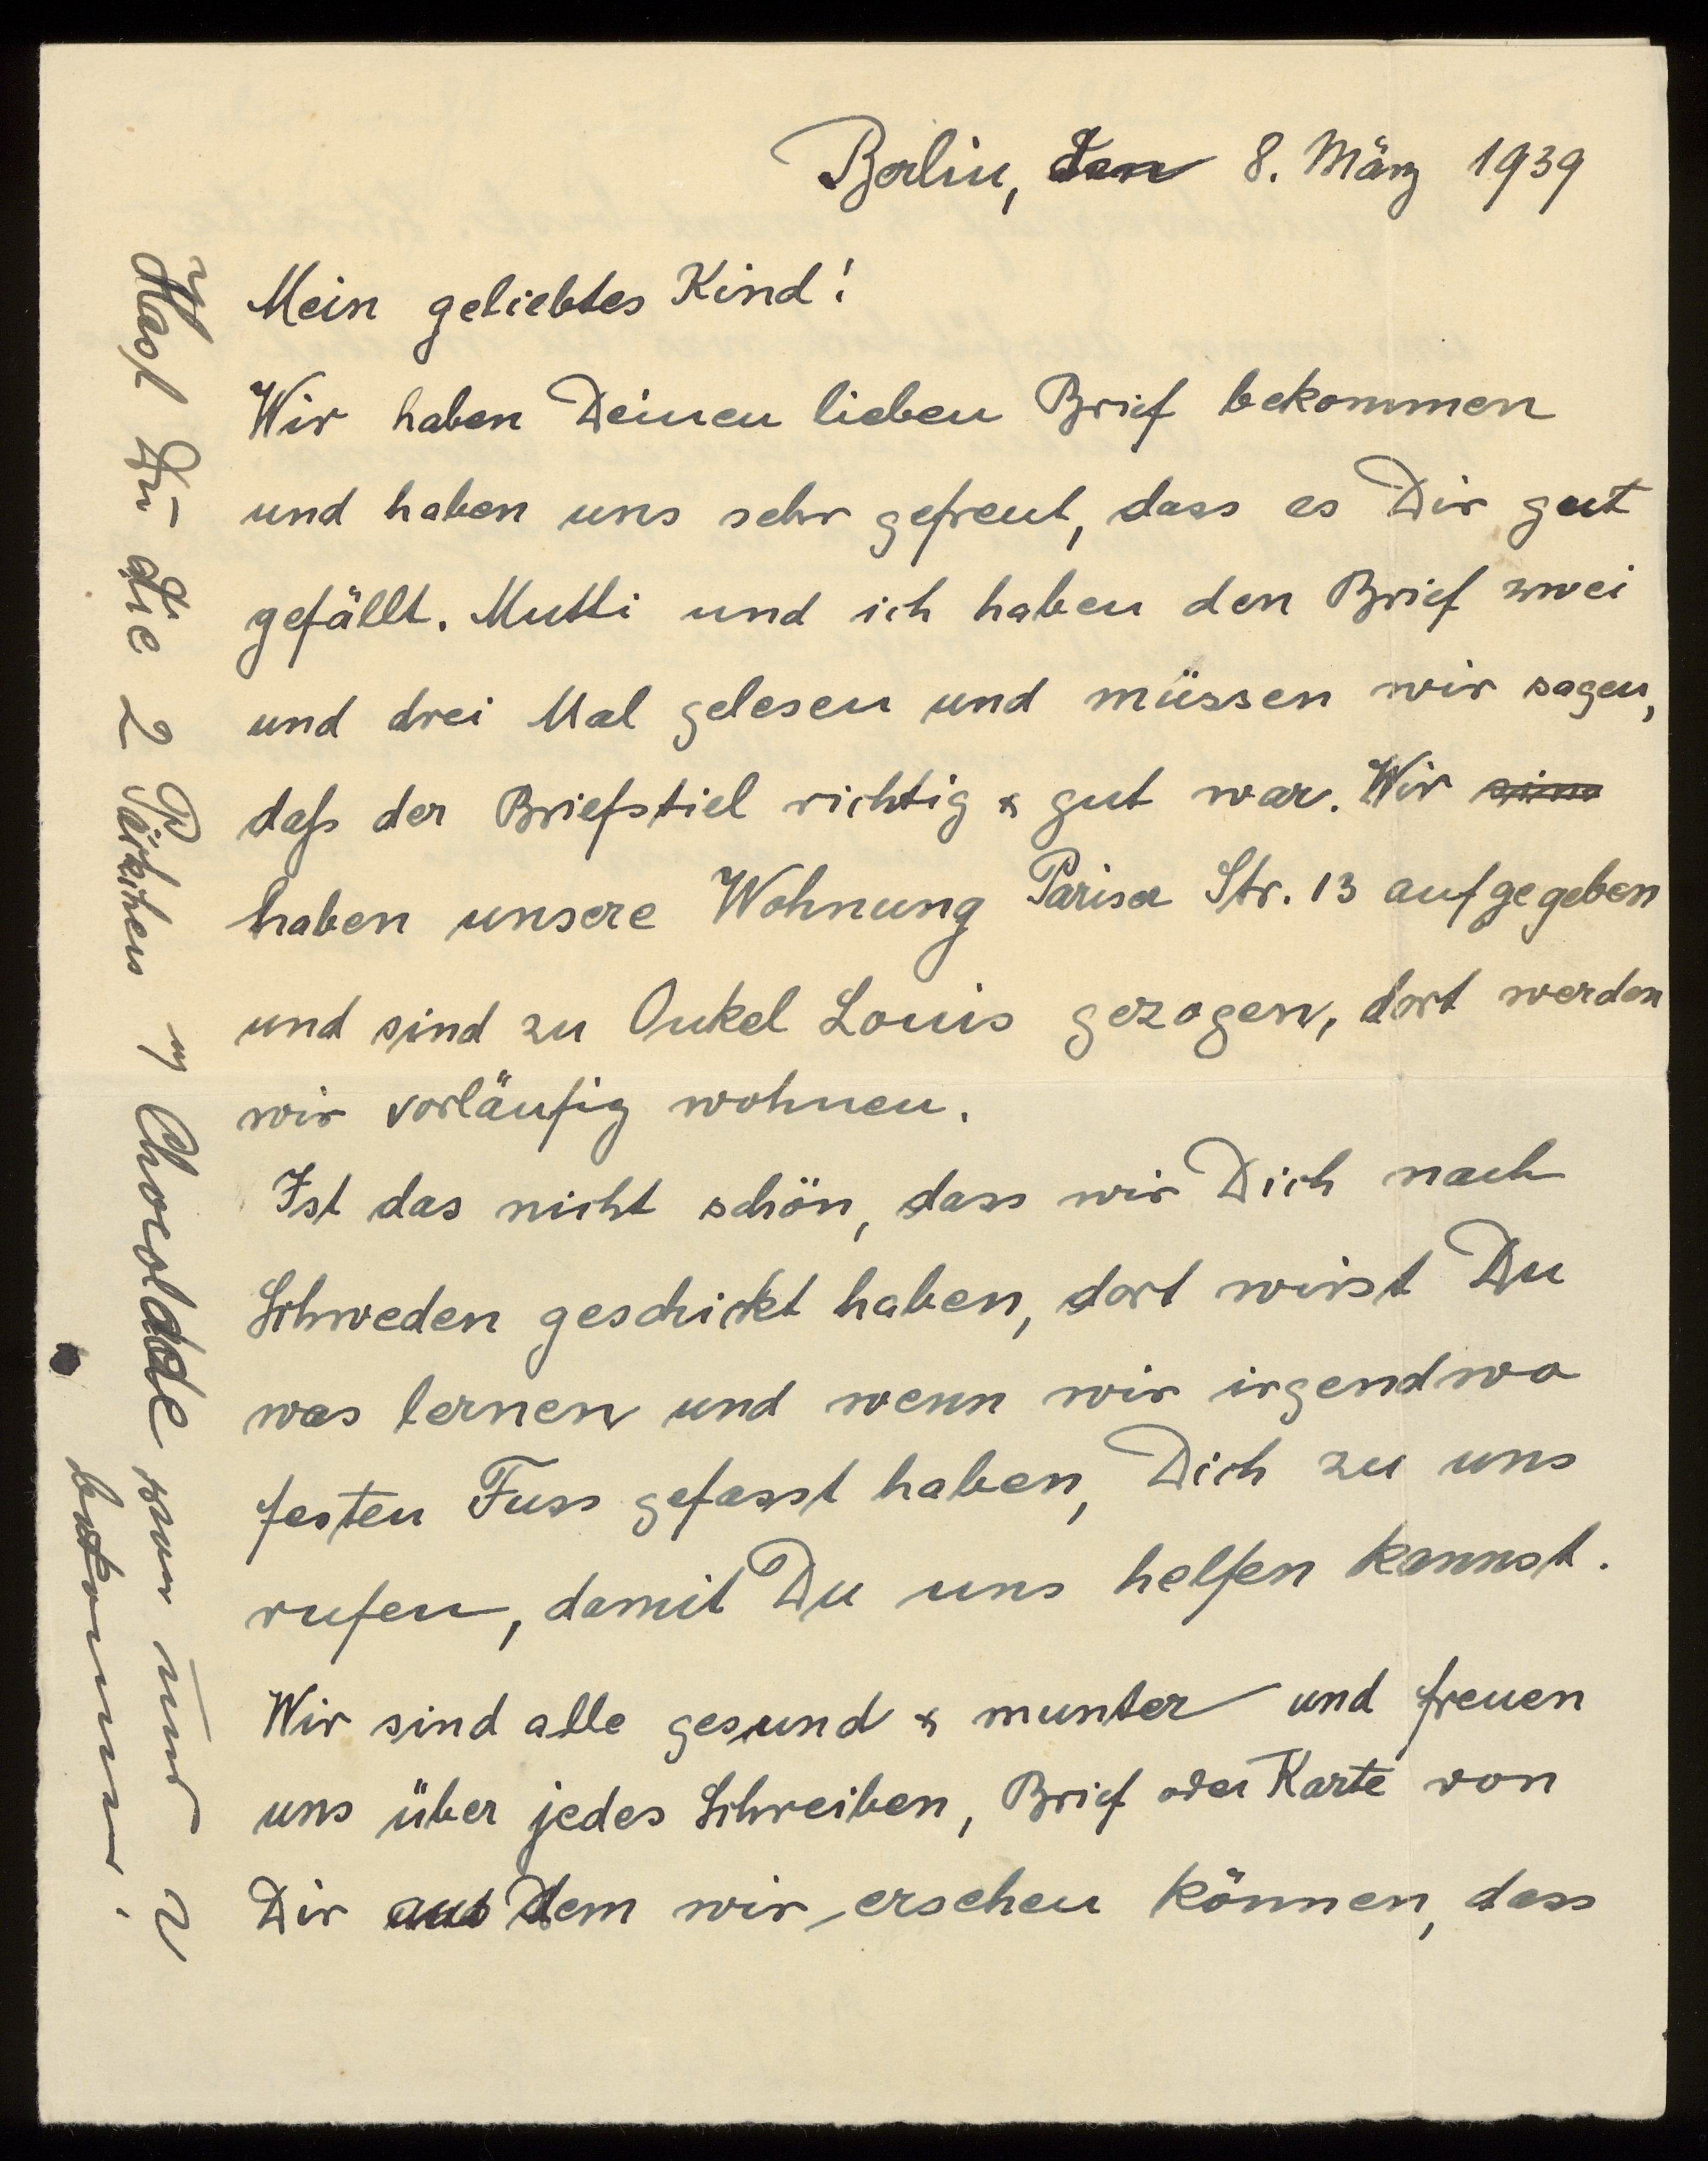 Berlin, den 8. März 1939
Mein geliebtes Kind!
Wir haben Deinen lieben Brief bekommen
und haben uns sehr gefreut, dass es Dir gut
gefällt. Mutti und ich haben den Brief zwei
und drei Mal gelesen und müssen wir sagen,
daß der Briefstiel richtig & gut war. Wir
haben unsere Wohnung Pariser Str. 13 aufgegeben
und sind zu Onkel Louis gezogen, dort werden
wir vorläufig wohnen.
Ist das nicht schön, dass wir Dich nach
Schweden geschickt haben, dort wirst Du
was lernen und wenn wir irgendwo
festen Fuss gefasst haben, Dich zu uns
rufen, damit Du uns helfen kannst.
Wir sind alle gesund & munter und freuen
uns über jedes Schreiben, Brief oder Karte von
Dir aus dem wir ersehen können, dass
Hast Du die 2 Päckchen Chocolade von uns
bekommen.